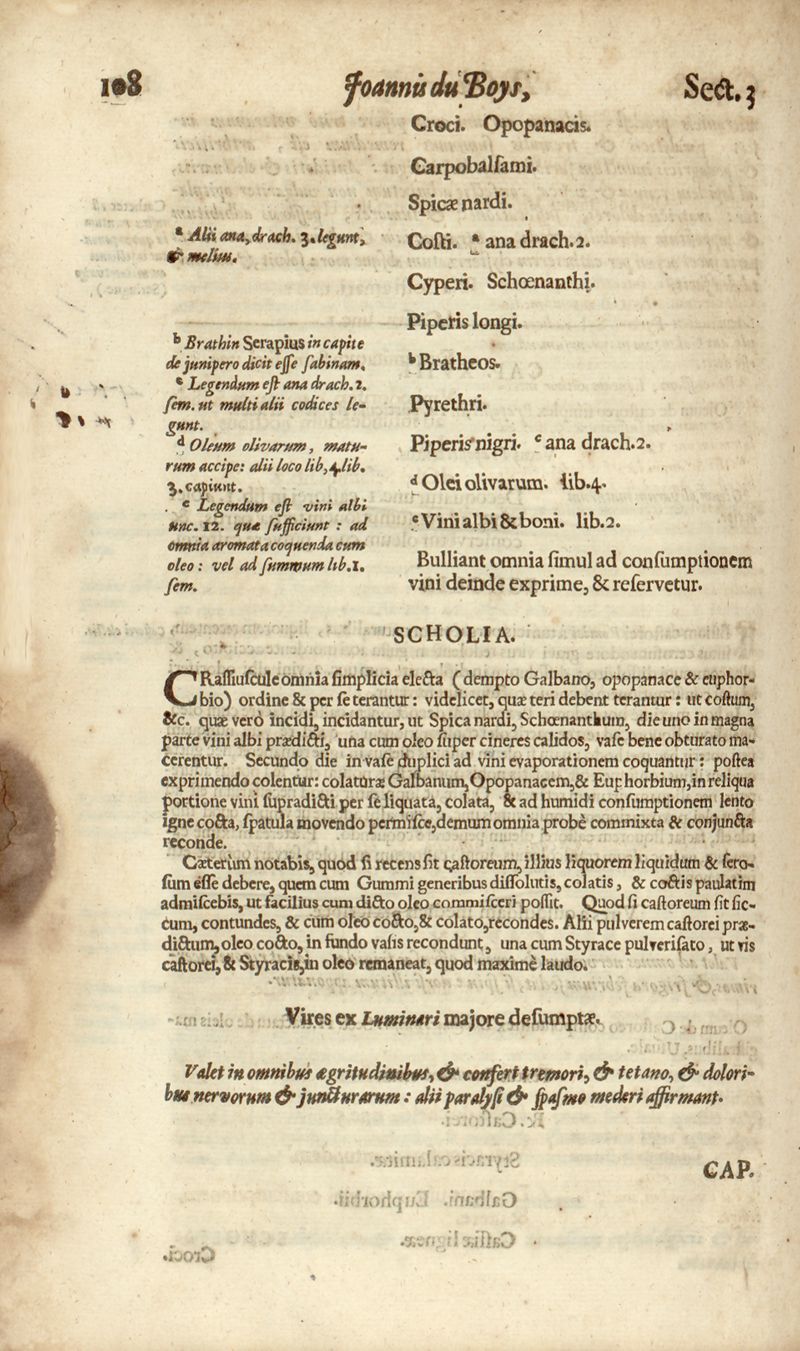 108 Joannis du Boys, Sect. 3
Croci. Opopanacis.
Carpobalſami.
Spicæ nardi.
Coſti. ª ana drach. 2.
Cyperi. Schœnanthi.
Piperis longi.
ᵇ Bratheos.
Pyrethri.
Piperis nigri. ᶜ ana drach. 2.
ᵈ Olei olivarum. lib. 4.
ᵉ Vini albi & boni. lib. 2.
Bulliant omnia ſimul ad conſumptionem
vini deinde exprime, & reſervetur.
ª Alii ana, drach. 3. legunt,
& melius.
ᵇ Brathin Serapius in capite
de junipero dicit eſſe ſabinam.
ᶜ Legendum eſt ana drach. 2.
ſem. ut multi alii codices le-
gunt.
ᵈ Oleum olivarum, matu-
rum accipe: alii loco lib, 4. lib.
3. capiunt.
ᵉ Legendum eſt vini albi
unc. 12. quæ ſufficiunt : ad
omnia aromata coquenda cum
oleo : vel ad ſummum lib. 1.
ſem.
SCHOLIA.
CRaſſiuſcule omnia ſimplicia electa (dempto Galbano, opopanace & euphor-
bio) ordine & per ſe terantur : videlicet, quæ teri debent terantur : ut coſtum,
&c. quæ verò incidi, incidantur, ut Spica nardi, Schœnanthum, die uno in magna
parte vini albi prædicti, una cum oleo ſuper cineres calidos, vaſe bene obturato ma-
cerentur. Secundo die in vaſe duplici ad vini evaporationem coquantur : poſtea
exprimendo colentur: colaturæ Galbanum, Opopanacem, & Euphorbium, in reliqua
portione vini ſupradicti per ſe liquata, colata, & ad humidi conſumptionem lento
igne cocta, ſpatula movendo permiſce, demum omnia probè commixta & conjuncta
reconde.
Cæterùm notabis, quod ſi recens ſit caſtoreum, illius liquorem liquidum & ſero-
ſum eſſe debere, quem cum Gummi generibus diſſolutis, colatis, & coctis paulatim
admiſcebis, ut facilius cum dicto oleo commiſceri poſſit. Quod ſi caſtoreum ſit ſic-
cum, contundes, & cum oleo cocto, & colato, recondes. Alii pulverem caſtorei præ-
dictum, oleo cocto, in fundo vaſis recondunt, una cum Styrace pulveriſato, ut vis
caſtorei, & Styracis, in oleo remaneat, quod maximè laudo.
Vires ex Luminari majore deſumptæ.
Valet in omnibus ægritudinibus, & confert tremori, & tetano, & dolori-
bus nervorum & juncturarum : alii paralyſi & ſpaſmo mederi affirmant.
CAP.